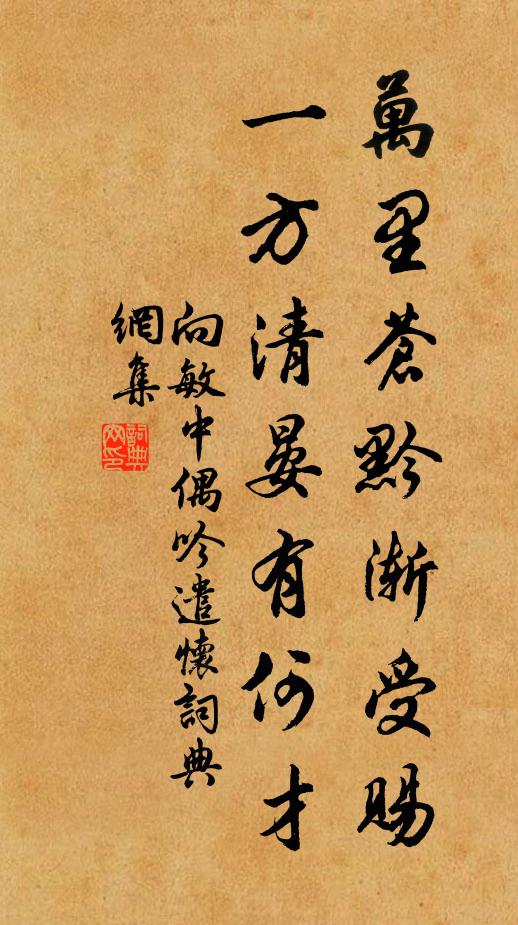 萬里蒼黔漸受賜
一方清晏有何才
向敏中偶吟遣懷詞典
網集
詞典
网印